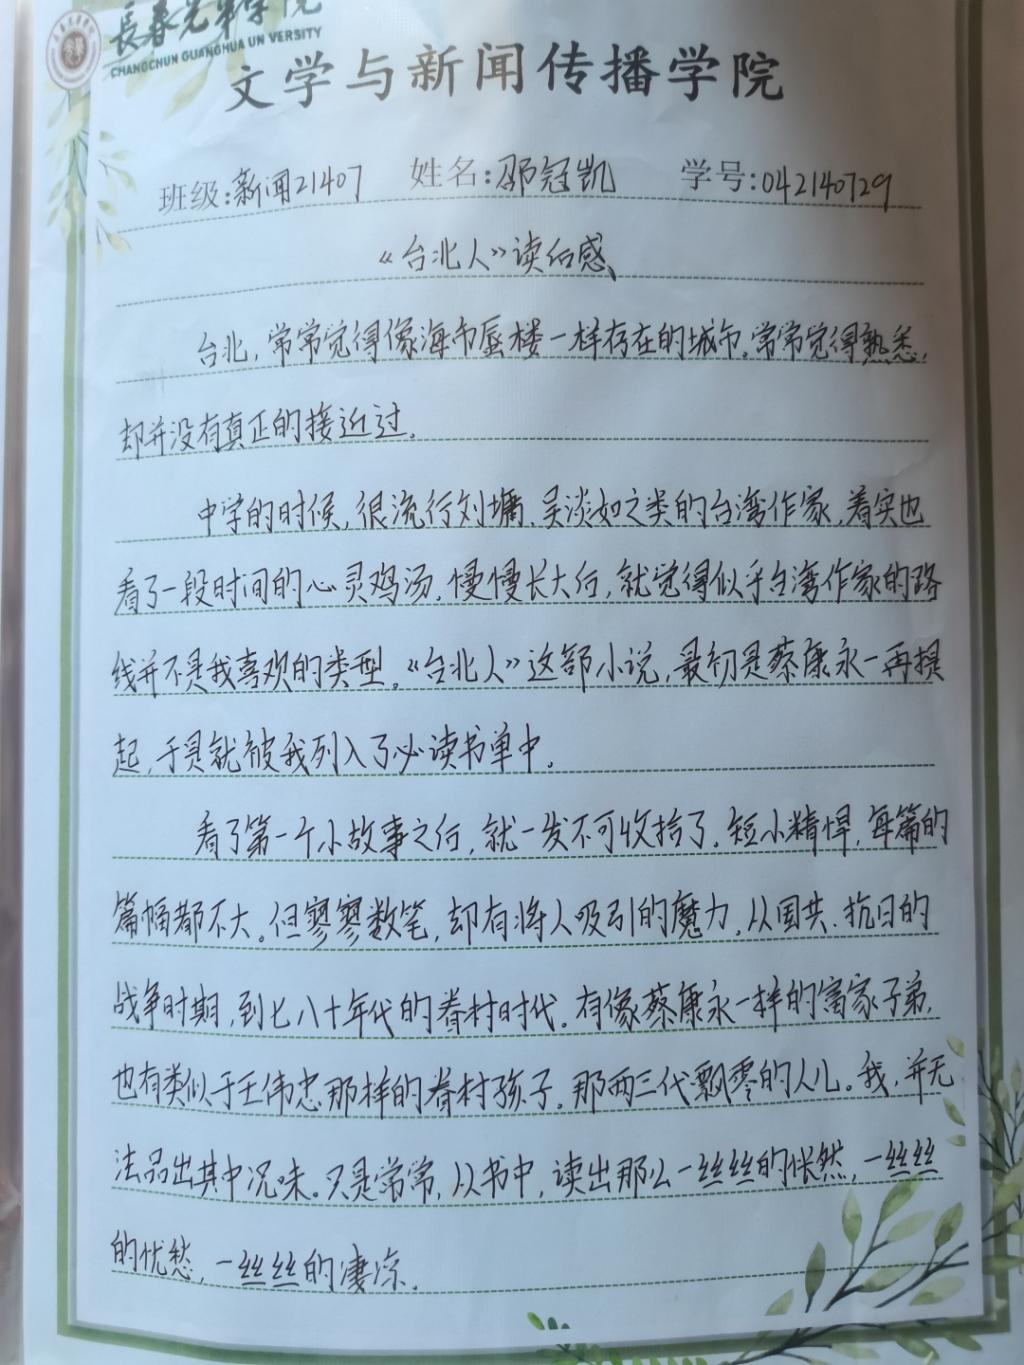 長春光華学院
CHANGCHUN GUANGHUA UN VERSITY
文学与新闻传播学院
班级:新闻21407 姓名:邵冠凯 学号:042140729
《台北人》读后感
台北，常常觉得像海市蜃楼一样存在的城市。常常觉得熟悉，
却并没有真正的接近过。
中学的时候，很流行刘墉、吴淡如之类的台湾作家，着实也
看了一段时间的心灵鸡汤，慢慢长大后，就觉得似乎台湾作家的路
线并不是我喜欢的类型。《台北人》这部小说，最初是蔡康永一再提
起，于是就被我列入了必读书单中。
看了第一个小故事之后，就一发不可收拾了。短小精悍，每篇的
篇幅都不大。但寥寥数笔，却有将人吸引的魔力。从国共、抗日的
战争时期，到七八十年代的眷村时代。有像蔡康永一样的富家子弟，
也有类似于王伟忠那样的眷村孩子。那两三代飘零的人儿。我，并无
法品出其中况味。只是常常，从书中，读出那么一丝丝的怅然，一丝丝
的忧愁，一丝丝的凄凉。